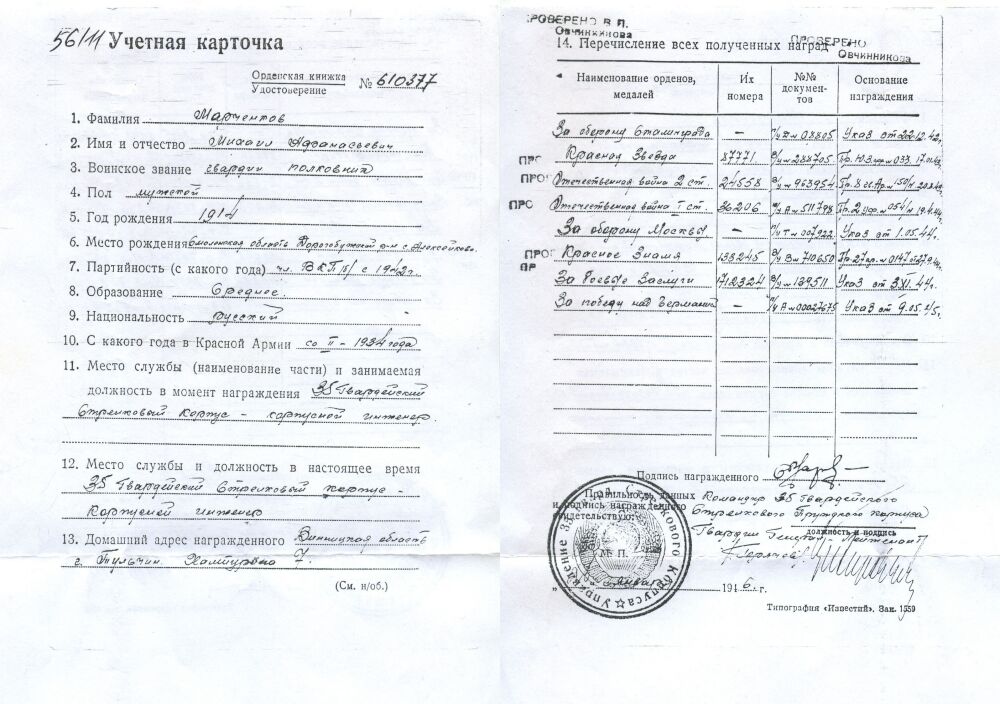 56/11 Учетная карточка
Орденская книжка
Удостоверение № 610377
1. Фамилия
2. Имя и отчество Михаил Афанасьевич
3. Воинское звание гвардии полковник
4. Пол мужской
5. Год рождения 1914
6. Место рождения Смоленская область Дорогобужский р-н с. Алексейково
7. Партийность (с какого года) чл. ВКП/б/ с 1942г.
8. Образование Среднее.
9. Национальность Русский
10. С какого года в Красной Армии со II - 1934 года
11. Место службы (наименование части) и занимаемая
должность в момент награждения 35 Гвардейский
Стрелковый Корпус - корпусной инженер.
12. Место службы и должность в настоящее время
35 Гвардейский Стрелковый корпус -
Корпусной инженер
13. Домашний адрес награжденного Винницкая область
г. Тульчин 7.
(См. н/об.)
ПРОВЕРЕНО В П.
Овчинникова
ПРОВЕРЕНО
Овчинникова
14. Перечисление всех полученных наград
Наименование орденов, медалей Их номера №№ документов Основание награждения
За оборону Сталинграда — 08805 Указ от 22.12.42г.
ПРО Красной Звезда 87771 288705
ПРО Отечественная война 2 ст. 24558 963954
ПРО Отечественная война I ст. 36206 511798
За оборону Москвы — 007922 Указ от 1.05.44г.
ПРО Красное Знамя 133245 710650
ПР
За боевые Заслуги 1712324 139511 Указ от 3.XI.44г.
За победу над Германией — 0027675 Указ от 9.05.45г.
Подпись награжденного
Правильность данных и подпись награжденного свидетельствую: Командир 35 Гвардейского
Стрелкового корпуса
Гвардии Генерал-Лейтенант
должность и подпись
Горячев
М. П.
Управление Стрелкового Корпуса
" января 1946.г.
Типография «Известий». Зак. 1559